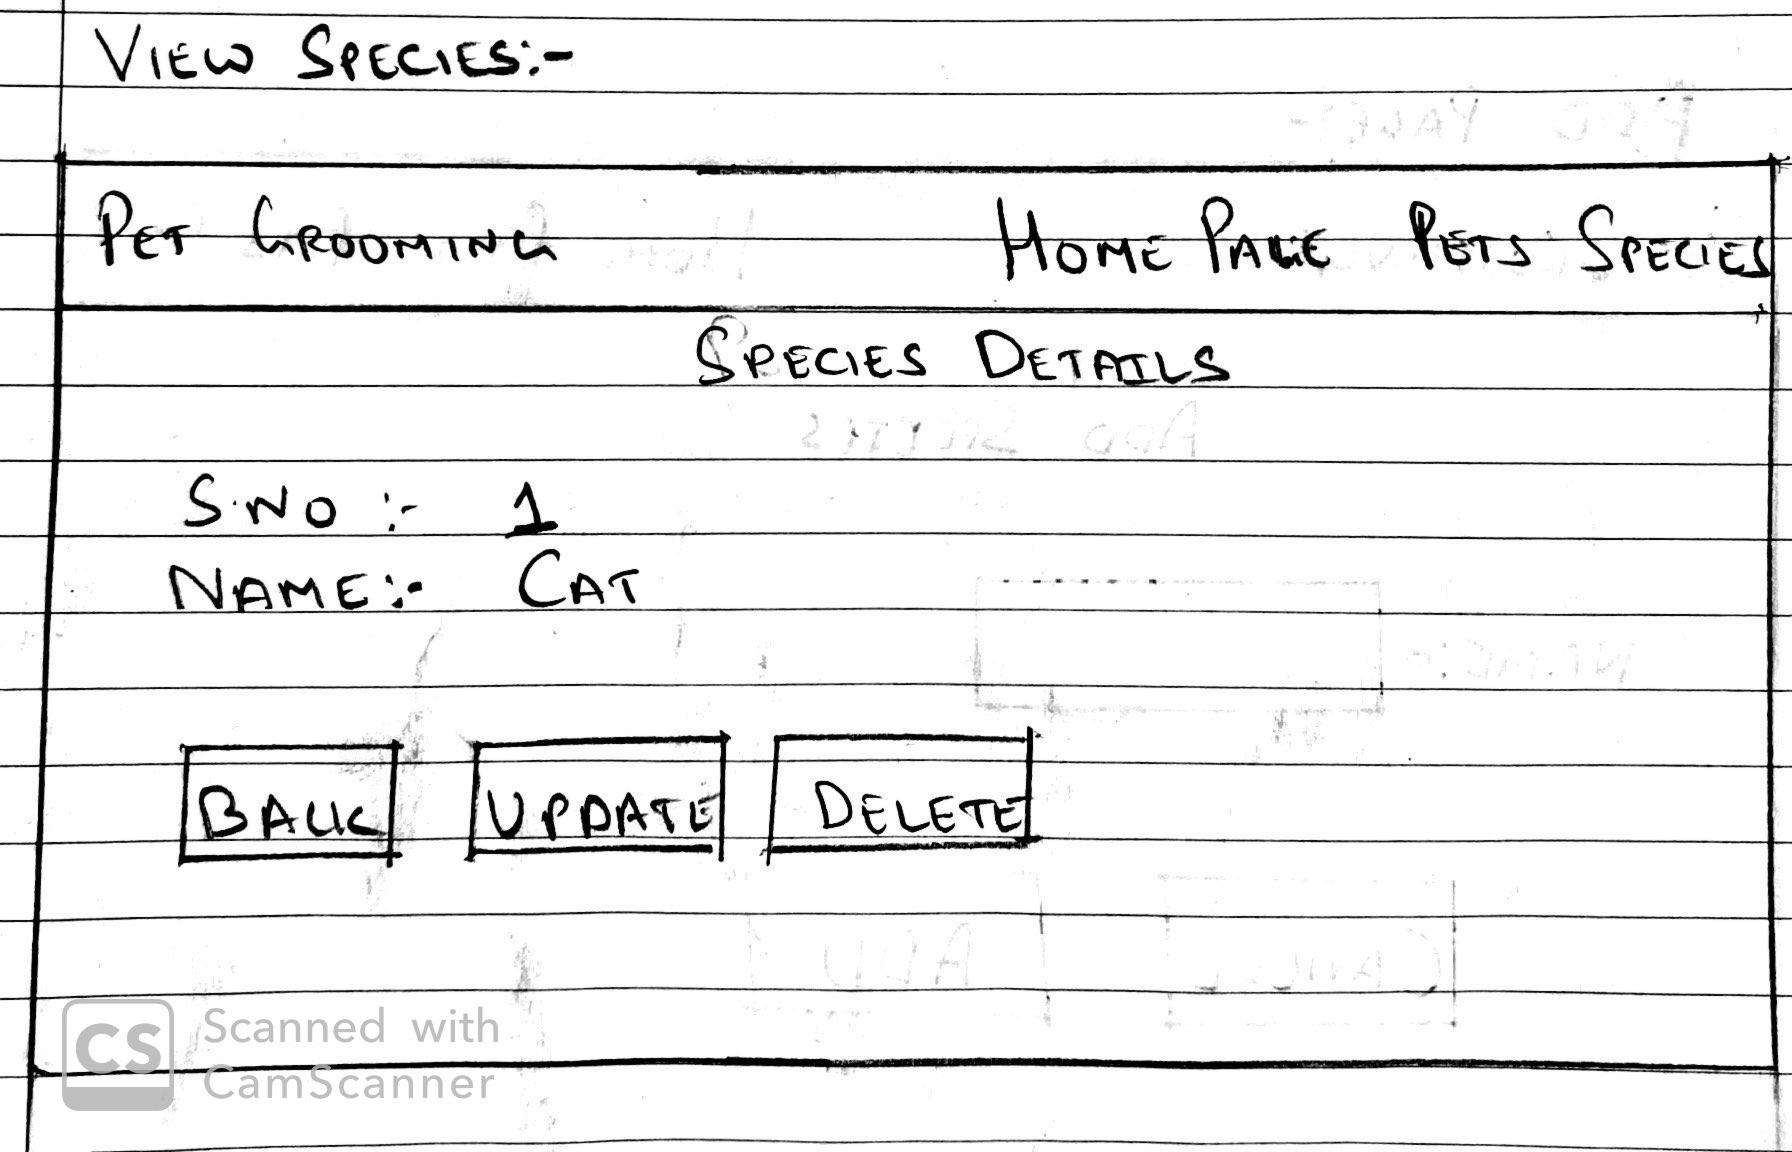 VIEW SPECIES:-
PET GROOMING HOME PAGE PETS SPECIES
SPECIES DETAILS
S.NO :- 1
NAME:- CAT
BACK UPDATE DELETE
CS Scanned with
CamScanner